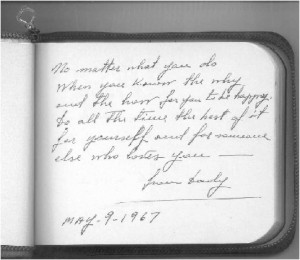 No matter what you do
When you know the why
and the how for you to be happy.
Do all the time the best of it
for yourself and for someone
else who loves you —
from
MAY-9-1967